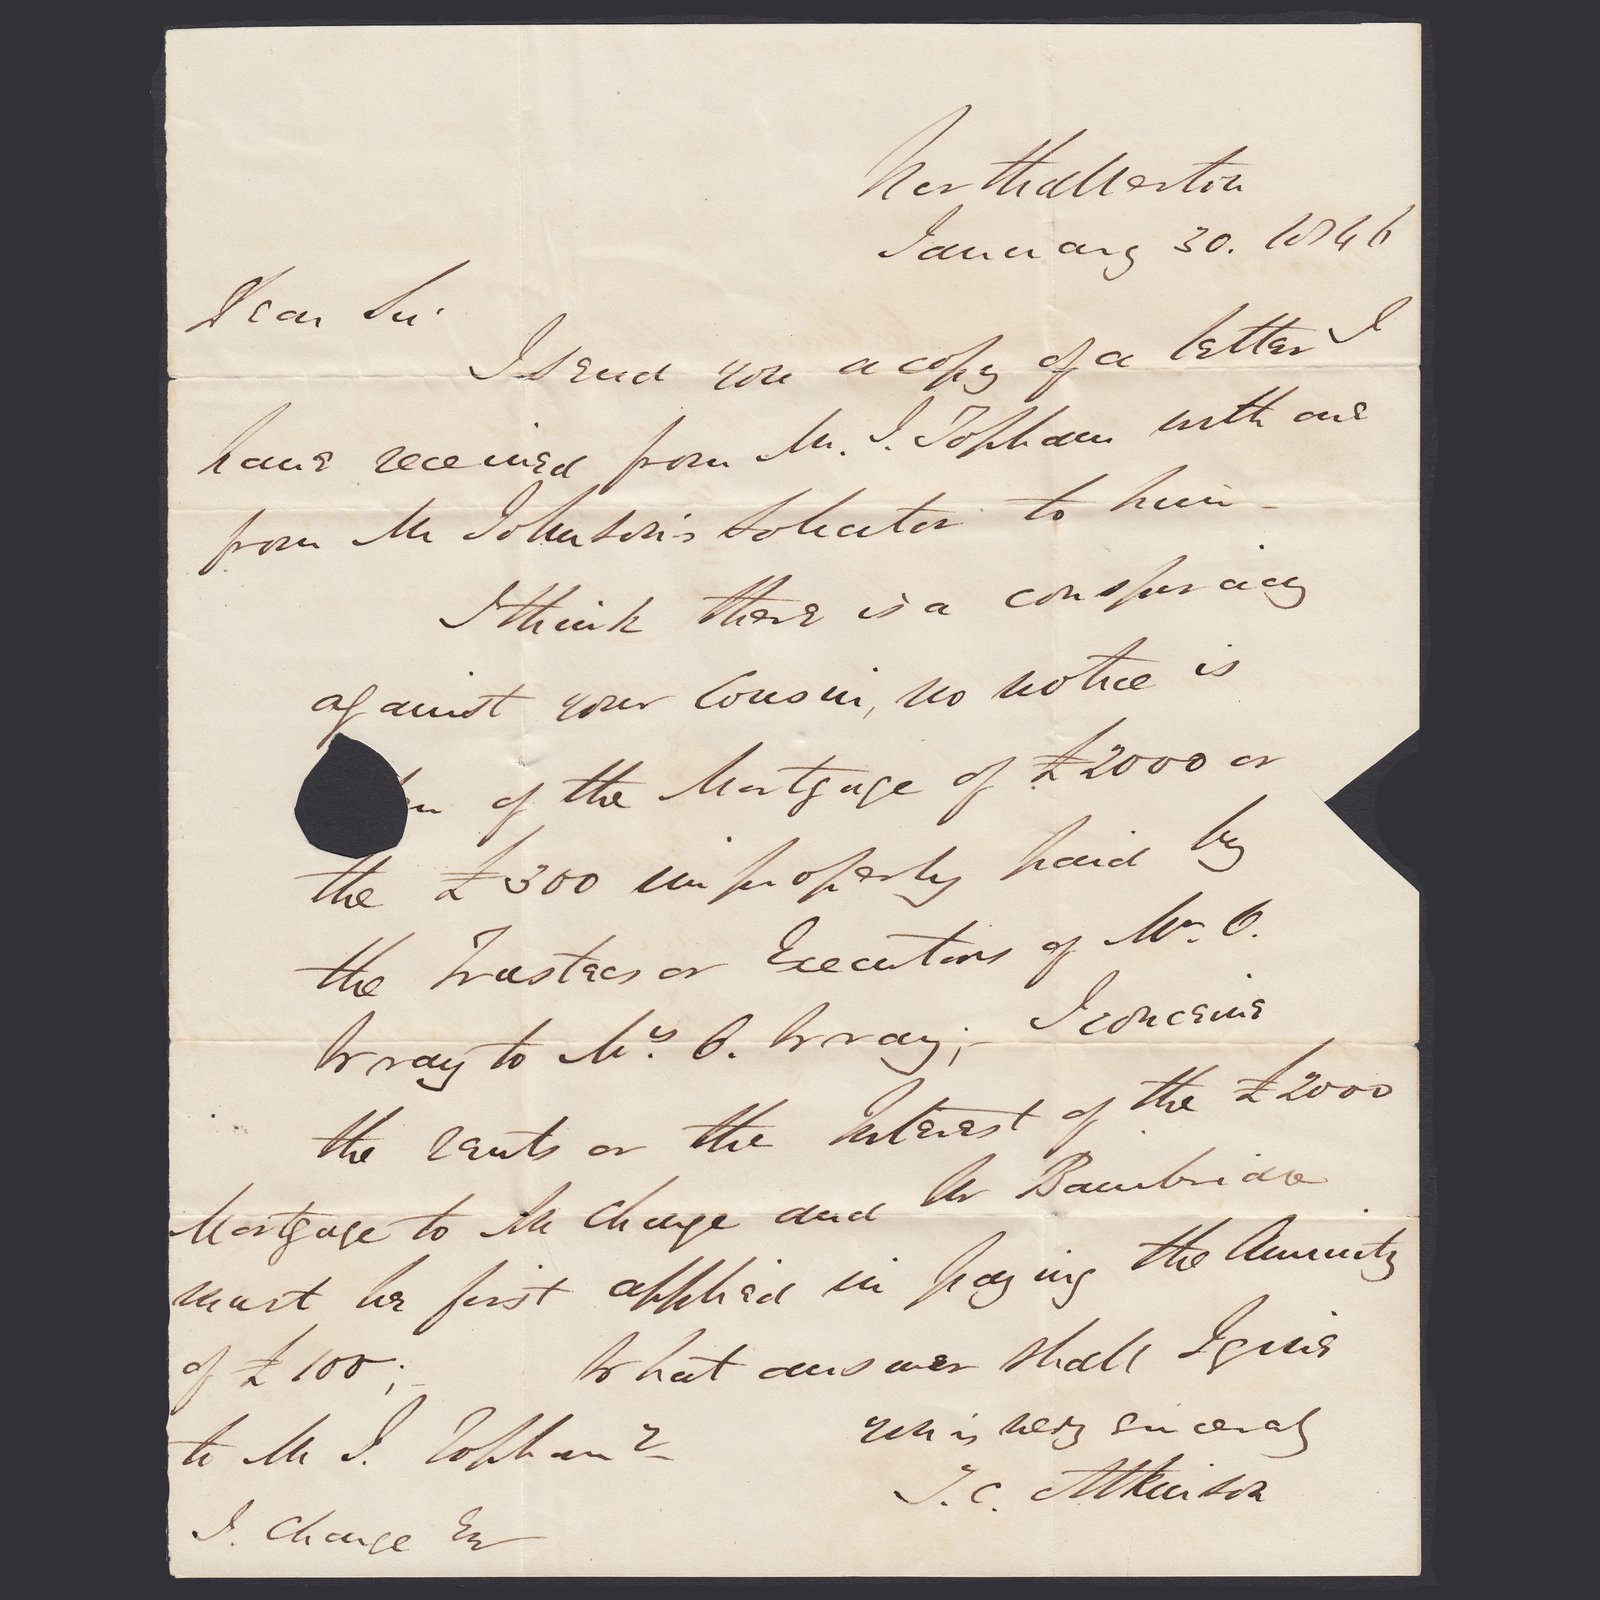 Northallerton
January 30. 1846
Dear Sir
I send you a copy of a letter I
have received from Mr. J. Topham with one
from Mr Johnson's Solicitor to him -
I think there is a conspiricy
against your Cousin, no notice is
of the Mortgage of £2000 or
the £300 improperly paid by
the Trustees or Executors of Mr. O.
Wray to Mrs. O. Wray; - I conceive
the rents or the Interest of the £2000
Mortgage to Mr Change and Mr Bainbridge
must be first applied in paying the Annuity
of £100; - What answer shall I give
to Mr J. Topham?
yours very sincerely
T. C. Atkinson
J. Change Esq